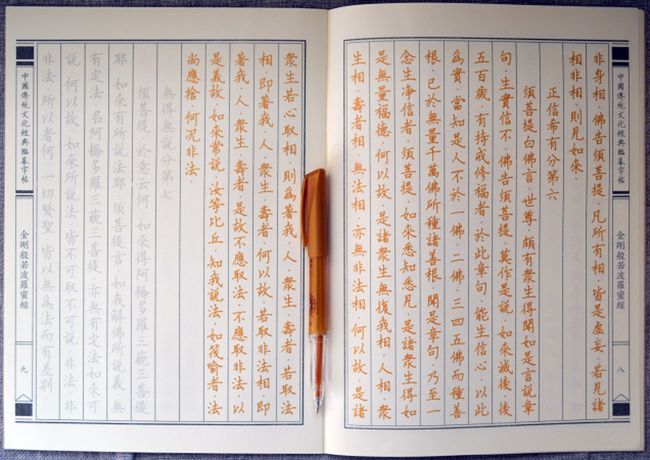 中國傳統文化經典臨摹字帖
金剛般若波羅蜜經
八
非身相·佛告須菩提·凡所有相·皆是虛妄·若見諸
相非相·則見如來·
正信希有分第六
須菩提白佛言·世尊·頗有衆生得聞如是言說章
句·生實信不·佛告須菩提·莫作是說·如來滅後·後
五百歲·有持戒修福者·於此章句·能生信心·以此
爲實·當知是人不於一佛·二佛·三四五佛而種善
根·已於無量千萬佛所種諸善根·聞是章句·乃至一
念生淨信者·須菩提·如來悉知悉見·是諸衆生得如
是無量福德·何以故·是諸衆生無復我相·人相·衆
生相·壽者相·無法相·亦無非法相·何以故·是諸
衆生若心取相·則爲著我·人·衆生·壽者·若取法
相·即著我·人·衆生·壽者·何以故·若取非法相·即
著我·人·衆生·壽者·是故不應取法·不應取非法·以
是義故·如來常說·汝等比丘·知我說法·如筏喻者·法
尚應捨·何況非法
無得無說分第七
須菩提·於意云何·如來得阿耨多羅三藐三菩提
耶·如來有所說法耶·須菩提言·如我解佛所說義·無
有定法·名阿耨多羅三藐三菩提·亦無有定法如來可
說·何以故·如來所說法·皆不可取·不可說·非法·非
非法·所以者何·一切賢聖·皆以無爲法而有差別
中國傳統文化經典臨摹字帖
金剛般若波羅蜜經
九